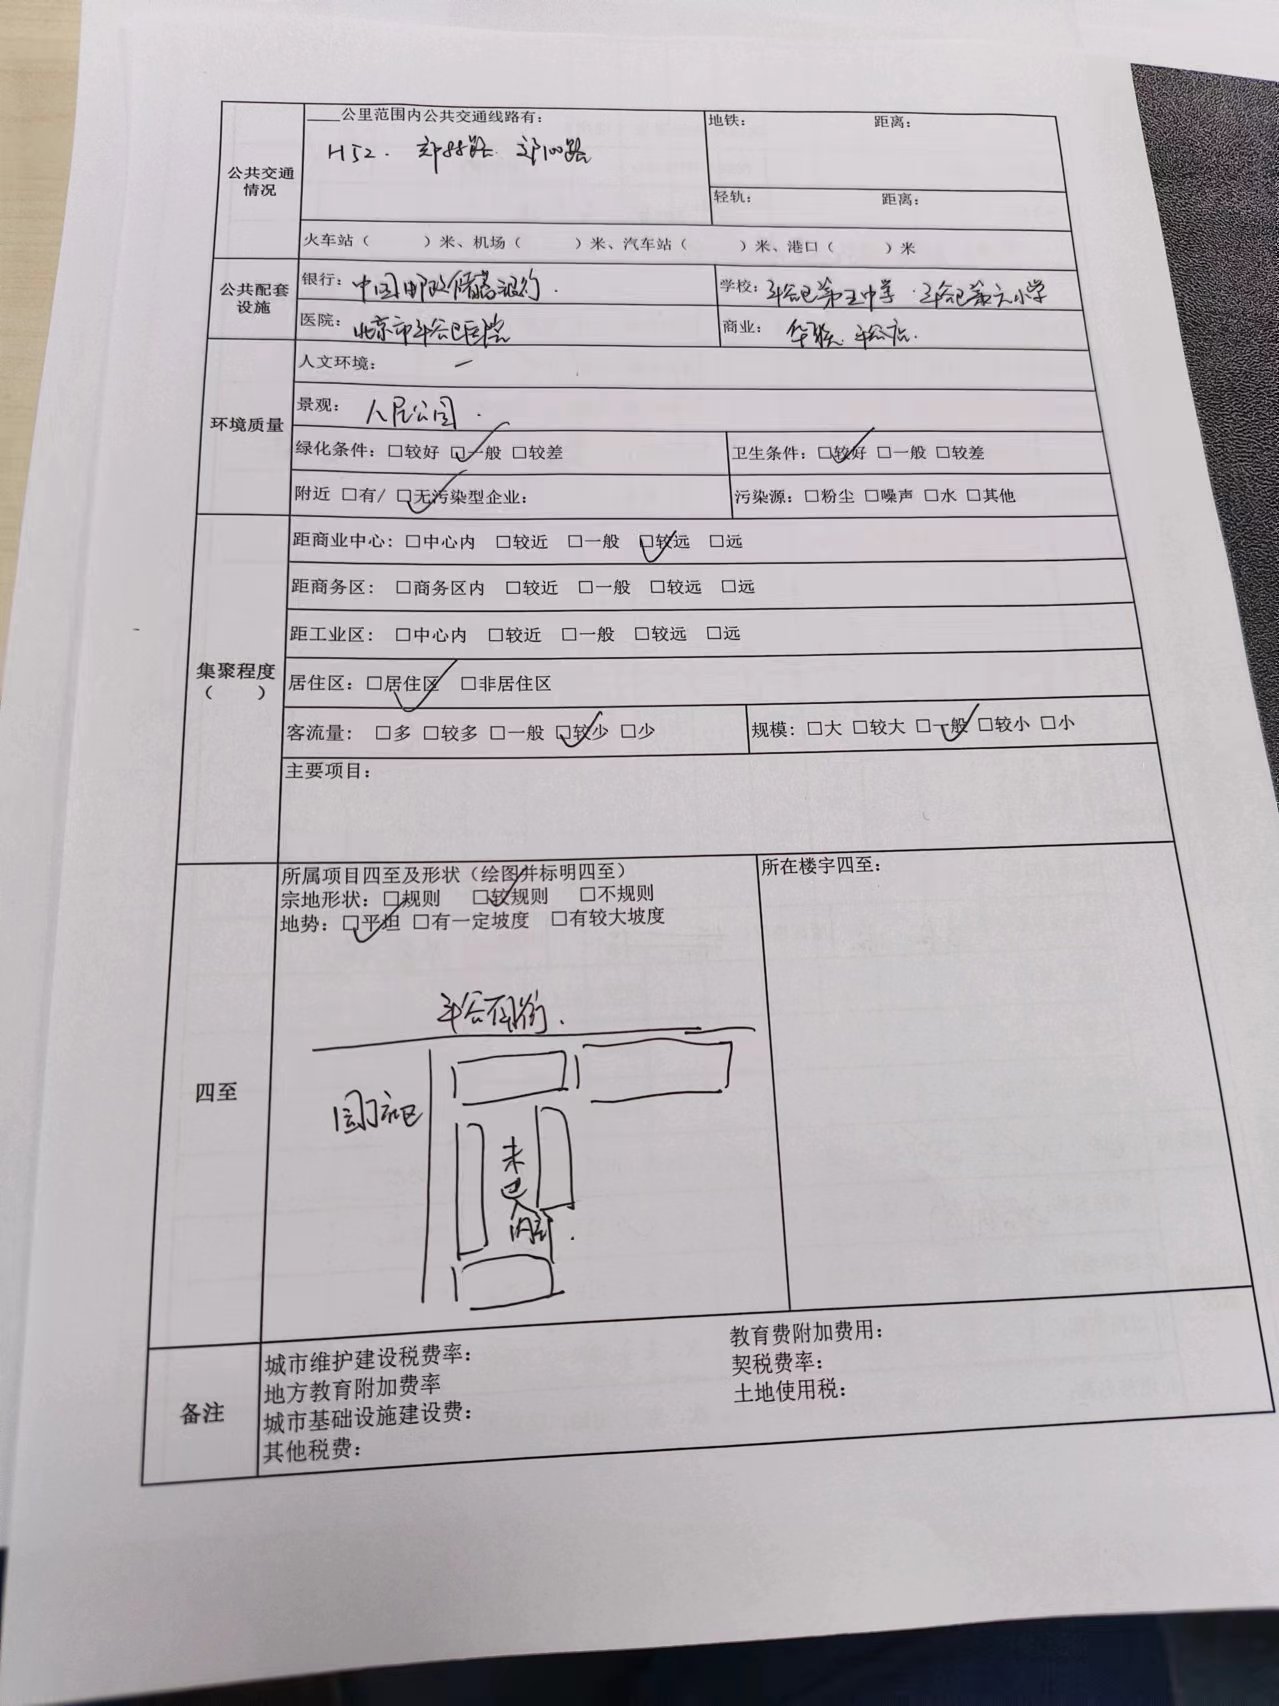 公共交通情况
____公里范围内公共交通线路有：
H52. 郊88路 郊100路
地铁： 距离：
轻轨： 距离：
火车站（ ）米、机场（ ）米、汽车站（ ）米、港口（ ）米
公共配套设施
银行：中国邮政储蓄银行.
学校：平谷区第五中学·平谷区第六小学
医院：北京市平谷区医院
商业：华联 平谷店.
环境质量
人文环境： —
景观：人民公园.
绿化条件：□较好 □一般 □较差
卫生条件：□较好 □一般 □较差
附近 □有/ □无污染型企业：
污染源：□粉尘 □噪声 □水 □其他
集聚程度（ ）
距商业中心：□中心内 □较近 □一般 □较远 □远
距商务区：□商务区内 □较近 □一般 □较远 □远
距工业区：□中心内 □较近 □一般 □较远 □远
居住区：□居住区 □非居住区
客流量：□多 □较多 □一般 □较少 □少
规模：□大 □较大 □一般 □较小 □小
主要项目：
四至
所属项目四至及形状（绘图并标明四至）
宗地形状：□规则 □较规则 □不规则
地势：□平坦 □有一定坡度 □有较大坡度
所在楼宇四至：
平谷
内部.
备注
城市维护建设税费率：
地方教育附加费率
城市基础设施建设费：
其他税费：
教育费附加费用：
契税费率：
土地使用税：